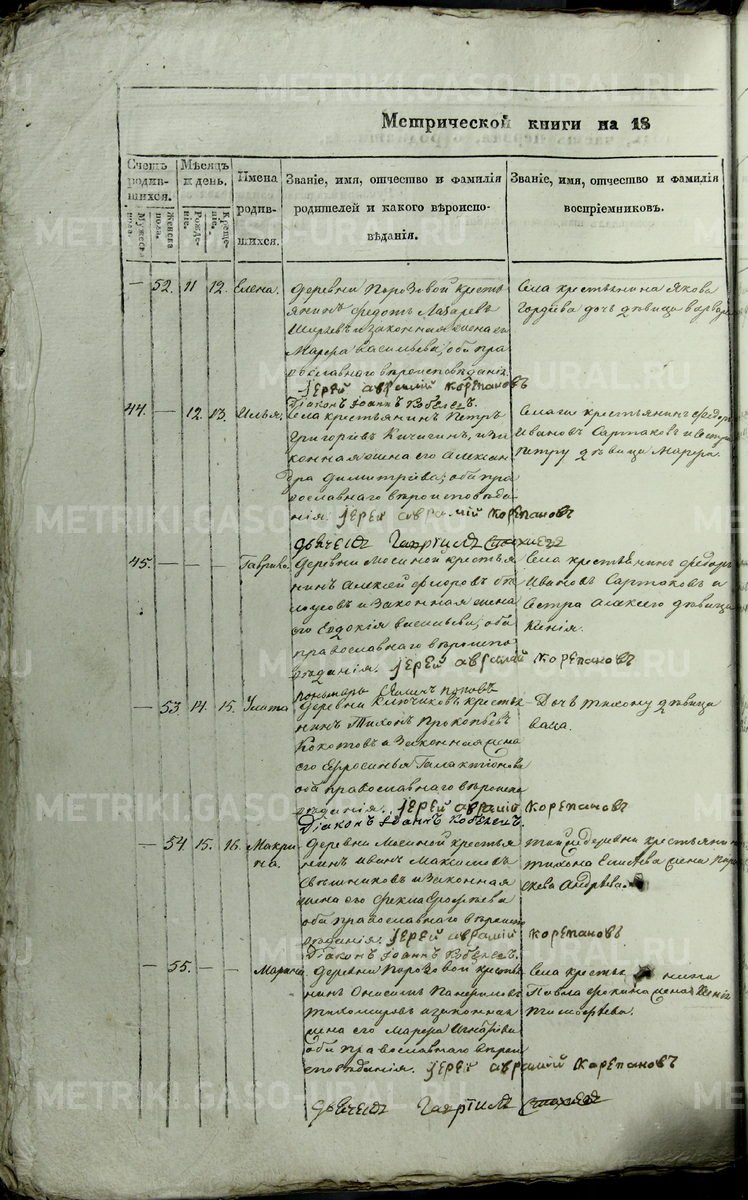 Метрической книги на 18
Счетъ родив-шихся.
Мѣсяцъ и день.
Имена родив-шихся.
Званіе, имя, отчество и фамилія родителей и какого вѣроиспо-вѣданія.
Званіе, имя, отчество и фамилія воспріемниковъ.
Мужеска пола.
Женска пола.
Рожде-ніе.
Креще-ніе.
— 52. 11 12. Елена.
Деревни Порозовой кресть
янинъ Федотъ Лазаревъ
и законная жена его
Марфа Васильева, оба пра
вославнаго вѣроисповѣданія.
Іерей Аврамій Корепановъ
Діаконъ Іоаннъ
Села крестьянина Якова
Гордѣева дочь дѣвица Варвара
44. — 12. 13. Илья.
Села крестьянинъ Петръ
Григорьевъ Кичигинъ, и за
конная жена его Алексан
дра Димитріева; оба пра
вославнаго вѣроисповѣда
нія. Іерей Аврамій Корепановъ
дьячекъ Гавріилъ
Села крестьянинъ Федоръ
Ивановъ Сартаковъ и сестра
Петру дѣвица Марфа.
45. — — — Гавріилъ.
Деревни Мосиной крестья
нинъ Алексей Флоровъ Бѣ
лоусовъ и законная жена
его Евдокія Васильева, оба
православнаго вѣроиспо
вѣданія. Іерей Аврамій Корепановъ
пономарь Поповъ
Села крестьянинъ Федоръ
Ивановъ Сартаковъ и
сестра Алексею дѣвица
— 53. 14. 15. Улита
Деревни Ключиковъ кресть
нинъ Тихонъ Прокопьевъ
и законная жена
его Ефросинья Галактіонова
оба православнаго вѣроиспо
вѣданія. Іерей Аврамій Корепановъ
Діаконъ Іоаннъ
Дочь Тихону дѣвица
— 54. 15. 16. Макри
на.
Деревни Мосиной крестья
нинъ Иванъ Максимовъ
и законная
жена его Фекла Ерофеева
оба православнаго вѣроиспо
вѣданія. Іерей Аврамій Корепановъ
Діаконъ Іоаннъ
Той же деревни крестьянина
Тихона Елисеева жена Пара
скева Андреева.
— 55. — — Марина
Деревни Порозовой кресть
нинъ Онисимъ Панфиловъ
Тихомировъ и законная
жена его Марфа Игнатіева
оба православнаго вѣрои
сповѣданія. Іерей Аврамій Корепановъ
дьячекъ Гавріилъ
Села кресть нина
Павла Фокина жена
METRIKI.GASO-URAL.RU